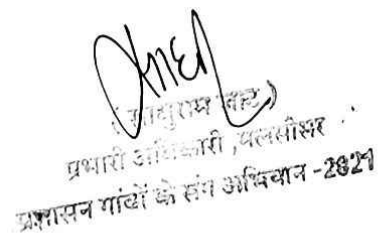 (साधुराम जाट)
प्रभारी अधिकारी, मलसीसर
प्रशासन गांवों के संग अभियान -2021